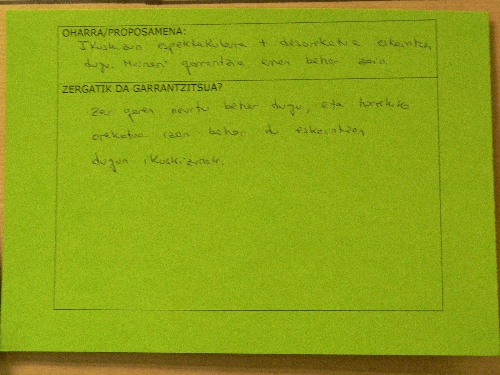 OHARRA/PROPOSAMENA:
Ikuskizun espektakularra + desorekatua eskaintzen
dugu. Mamiari garrantzia eman behar zaio.
ZERGATIK DA GARRANTZITSUA?
Zer garen neurtu behar dugu, eta horrelako
orekatua izan behar du eskaintzen
dugun ikuskizunak.